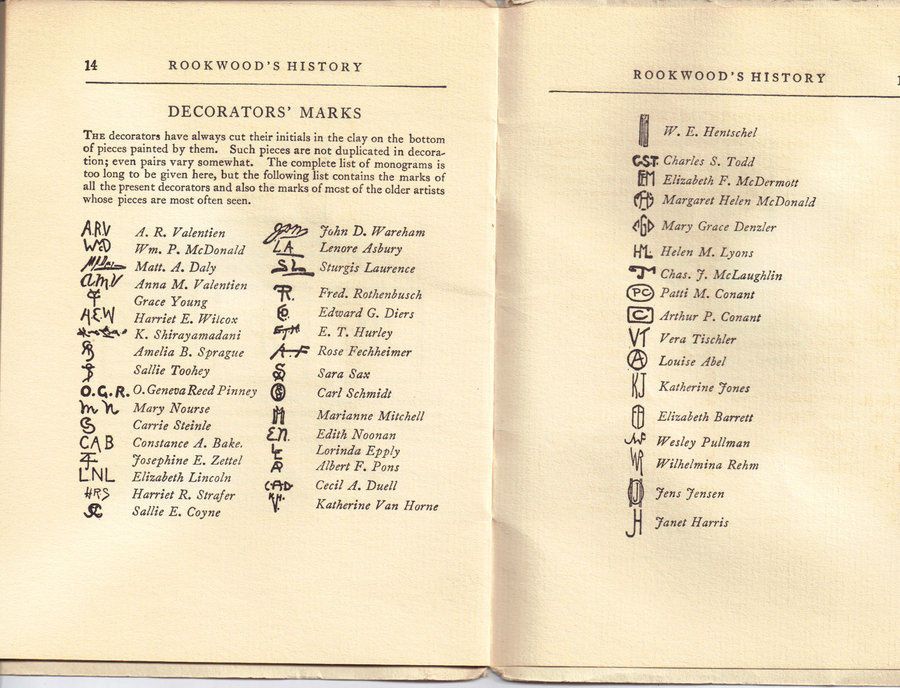 14
ROOKWOOD'S HISTORY
DECORATORS' MARKS
THE decorators have always cut their initials in the clay on the bottom
of pieces painted by them. Such pieces are not duplicated in decora-
tion; even pairs vary somewhat. The complete list of monograms is
too long to be given here, but the following list contains the marks of
all the present decorators and also the marks of most of the older artists
whose pieces are most often seen.
ARV A. R. Valentien
Wm. P. McDonald
Matt. A. Daly
AMV Anna M. Valentien
Grace Young
A.E.W Harriet E. Wilcox
K. Shirayamadani
Amelia B. Sprague
Sallie Toohey
O.G.R. O. Geneva Reed Pinney
m n Mary Nourse
Carrie Steinle
CAB Constance A. Bake.
Josephine E. Zettel
LNL Elizabeth Lincoln
HRS Harriet R. Strafer
Sallie E. Coyne
John D. Wareham
LA Lenore Asbury
SL Sturgis Laurence
R. Fred. Rothenbusch
Edward G. Diers
ETH E. T. Hurley
A.F Rose Fechheimer
Sara Sax
Carl Schmidt
Marianne Mitchell
EN. Edith Noonan
Lorinda Epply
Albert F. Pons
CAD Cecil A. Duell
K.H.V. Katherine Van Horne
ROOKWOOD'S HISTORY
W. E. Hentschel
CST. Charles S. Todd
Elizabeth F. McDermott
Margaret Helen McDonald
Mary Grace Denzler
Helen M. Lyons
Chas. J. McLaughlin
PC Patti M. Conant
C Arthur P. Conant
VT Vera Tischler
A Louise Abel
KJ Katherine Jones
Elizabeth Barrett
Wesley Pullman
WR Wilhelmina Rehm
Jens Jensen
JH Janet Harris